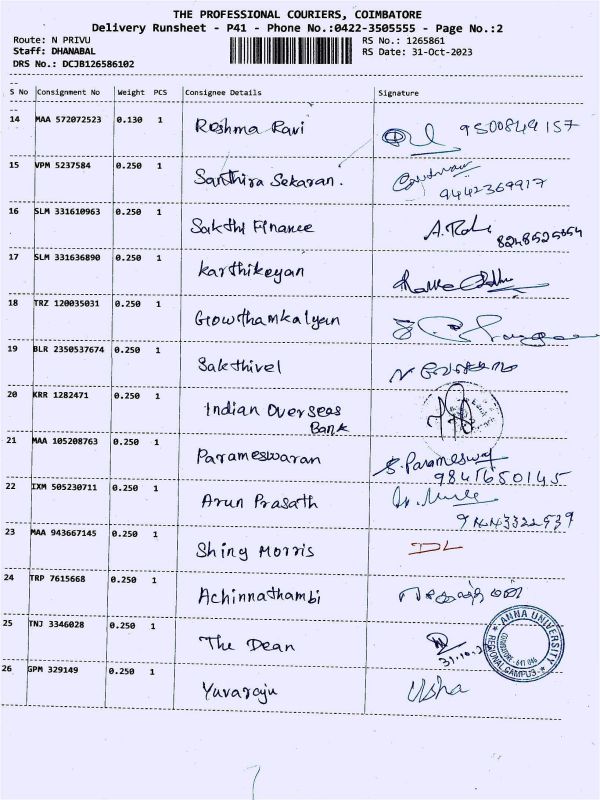 THE PROFESSIONAL COURIERS, COIMBATORE
Delivery Runsheet - P41 - Phone No.:0422-3505555 - Page No.:2
Route: N PRIVU
RS No.: 1265861
Staff: DHANABAL
RS Date: 31-Oct-2023
DRS No.: DCJB126586102
S No Consignment No Weight PCS Consignee Details Signature
14 MAA 572072523 0.130 1 Reshma Ravi 9500849157
15 VPM 5237584 0.250 1 Santhira Sekaran.
9442369917
16 SLM 331610963 0.250 1 Sakthi Finance
17 SLM 331636890 0.250 1 Karthikeyan
18 TRZ 120035031 0.250 1 Gowthamkalyan
19 BLR 2350537674 0.250 1 Sakthivel
20 KRR 1282471 0.250 1 Indian Overseas
Bank
21 MAA 105208763 0.250 1 Parameswaran S. Parameswar
9841650145
22 IXM 505230711 0.250 1 Arun Prasath
94443322939
23 MAA 943667145 0.250 1 Shiny Morris DL
24 TRP 7615668 0.250 1 Achinnathambi
25 TNJ 3346028 0.250 1 The Dean
31.10.2
* ANNA UNIVERSITY *
REGIONAL CAMPUS
COIMBATORE - 641 046
26 GPM 329149 0.250 1 Yuvaraju Usha